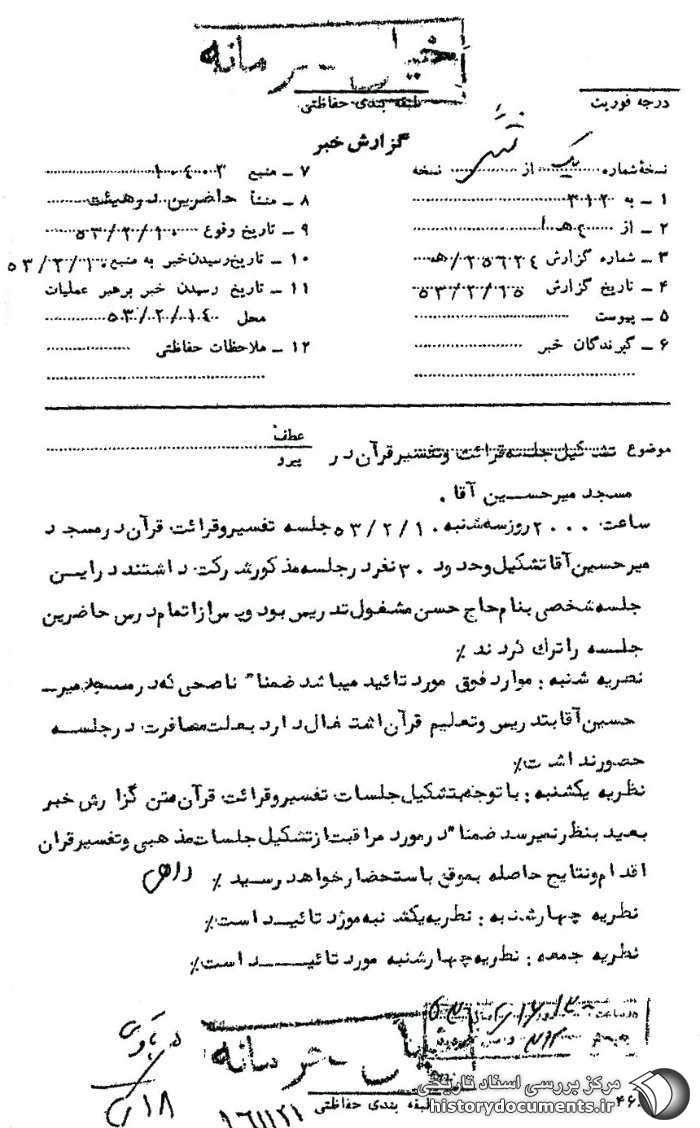 خیلی محرمانه
درجه فوریت
طبقه بندی حفاظتی
گزارش خبر
نسخهٔ شماره یک از نسخه
۱ ـ به ۳۱۲
۲ ـ از ۴هـ ا
۳ ـ شماره گزارش ۲۵۶۲۴/هـ
۴ ـ تاریخ گزارش ۵۳/۲/۱۵
۵ ـ پیوست
۶ ـ گیرندگان خبر
۷ ـ منبع ۱۰۴۰۳
۸ ـ منشأ حاضرین در هیئت
۹ ـ تاریخ وقوع ۵۳/۲/۱۰
۱۰ ـ تاریخ رسیدن خبر به منبع ۵۳/۲/۱۰
۱۱ ـ تاریخ رسیدن خبر برهبر عملیات
محل ۵۳/۲/۱۴
۱۲ ـ ملاحظات حفاظتی
موضوع تشکیل جلسه قرائت وتفسیر قرآن در
عطف
پیرو
مسجد میرحسین آقا .
ساعت ۲۰۰۰ روز سه شنبه ۵۳/۲/۱۰ جلسه تفسیر وقرائت قرآن در مسجد
میرحسین آقا تشکیل وحدود ۳۰ نفر در جلسه مذکور شرکت داشتند در این
جلسه شخصی بنام حاج حسن مشغول تدریس بود وپس از اتمام درس حاضرین
جلسه را ترک کردند ٪
نظریه شنبه : موارد فوق مورد تائید میباشد ضمنا" ناصحی که در مسجد میر ـ
حسین آقا بتدریس وتعلیم قرآن اشتغال دارد بعلت مسافرت در جلسه
حضور نداشت ٪
نظریه یکشنبه : با توجه بتشکیل جلسات تفسیر وقرائت قرآن متن گزارش خبر
بعید بنظر نمیرسد ضمنا" در مورد مراقبت از تشکیل جلسات مذهبی وتفسیر قران
اقدام ونتایج حاصله بموقع باستحضار خواهد رسید ٪
نظریه چهارشنبه : نظریه یکشنبه مورد تائید است ٪
نظریه جمعه : نظریه چهارشنبه مورد تائید است ٪
خیلی محرمانه
طبقه بندی حفاظتی
مرکز بررسی اسناد تاریخی
historydocuments.ir